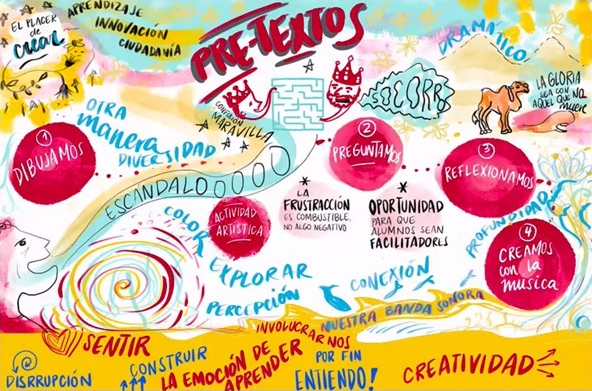 EL PLACER
DE
CREAR
APRENDIZAJE
INNOVACIÓN
CIUDADANÍA
PRE-TEXTOS
DRAMÁTICO
LA GLORIA
SEA CON
AQUEL QUE NO
MUERE
SOCORRO
OTRA
manera
DIVERSIDAD
CONEXIÓN
MARAVILLA
1
DIBUJAMOS
2
PREGUNTAMOS
3
REFLEXIONAMOS
4
CREAMOS
CON la
MUSICA
ESCANDALOOOOOO
ACTIVIDAD
ARTISTICA
* LA
FRUSTRACCIÓN
ES COMBUSTIBLE,
NO ALGO NEGATIVO
*
OPORTUNIDAD
PARA QUE
ALUMNOS SEAN
FACILITADORES
PROFUNDIDAD
COLOR
EXPLORAR
PERCEPCIÓN
CONEXIÓN
NUESTRA BANDA SONORA
SENTIR
DISRRUPCIÓN
CONSTRUIR
LA EMOCIÓN DE
APRENDER
INVOLUCRARNOS
POR FIN
ENTIENDO!
CREATIVIDAD